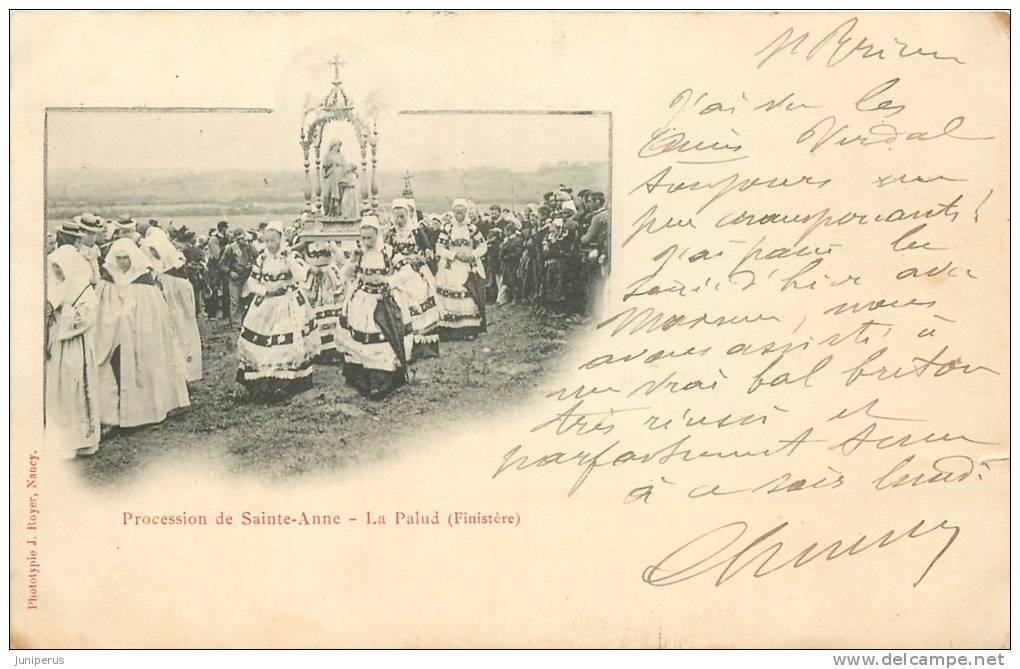 St Brieuc
J'ai vu les
Amis Verdal
toujours un
peu
j'ai passé la
soirée d'hier avec
nous
avons assisté à
un vrai bal breton
très réussi et
parfaitement tenu
à ce soir lundi
Procession de Sainte-Anne - La Palud (Finistère)
Phototypie J. Royer, Nancy.
juniperus
www.delcampe.net